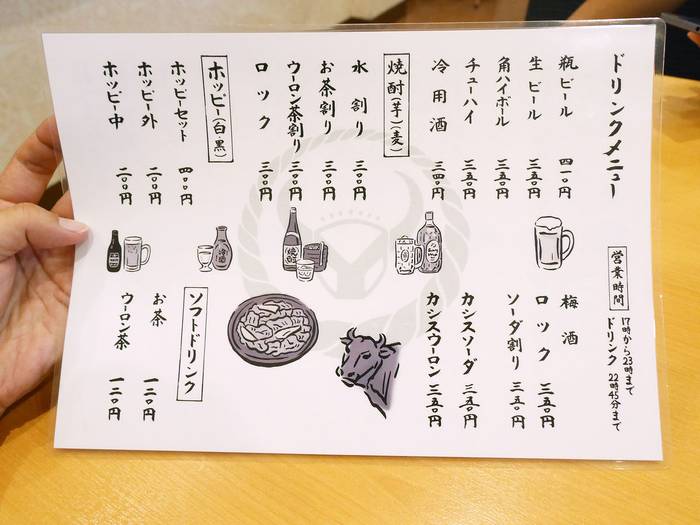 ドリンクメニュー
営業時間
17時から23時まで
ドリンク 22時45分まで
瓶ビール 四一〇円
生ビール 三五〇円
角ハイボール 三五〇円
チューハイ 三五〇円
冷用酒 三四〇円
焼酎(芋)(麦)
水割り 三〇〇円
お茶割り 三〇〇円
ウーロン茶割り 三〇〇円
ロック 三〇〇円
ホッピー(白・黒)
ホッピーセット 四〇〇円
ホッピー外 二〇〇円
ホッピー中 二〇〇円
梅酒
ロック 三五〇円
ソーダ割り 三五〇円
カシスソーダ 三五〇円
カシスウーロン 三五〇円
ソフトドリンク
お茶 一二〇円
ウーロン茶 一二〇円